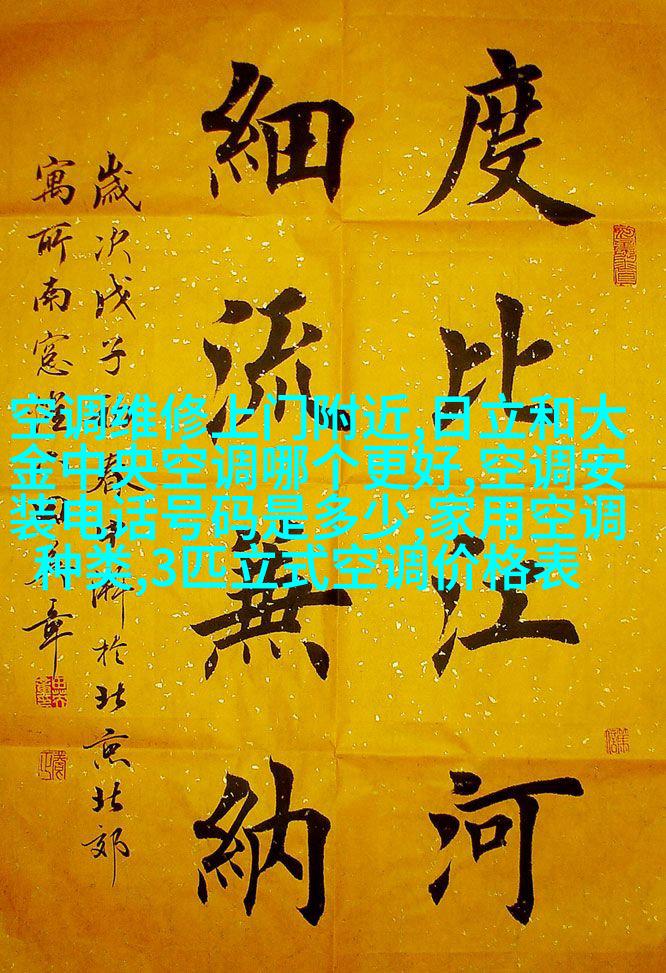 度比江河
細流兼納
歲次戊子春中澣於北京北郊
寓所南窓章
空调维修上门附近,日立和大
金中央空调哪个更好,空调安
装电话号码是多少,家用空调
种类,3匹立式空调价格表